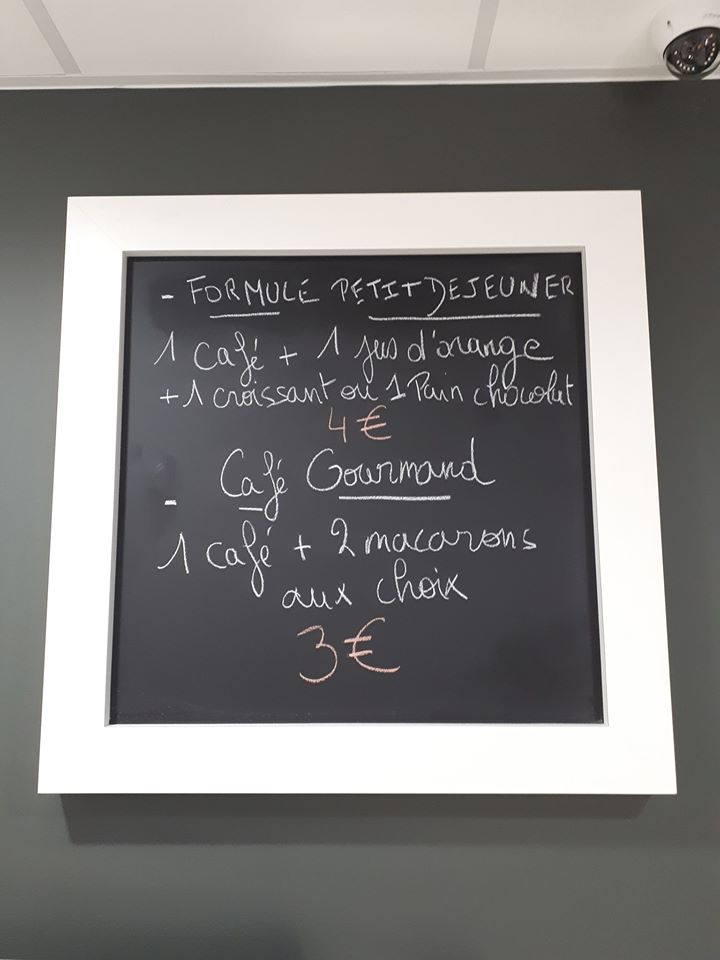 - FORMULE PETIT DEJEUNER
1 café + 1 jus d'orange
+ 1 croissant ou 1 Pain chocolat
4€
- Café Gourmand
1 café + 2 macarons
aux choix
3€